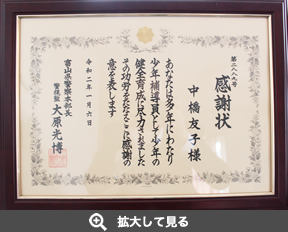 第二八八号
感謝状
中橋友子様
あなたは多年にわたり
少年補導員として少年の
健全育成に尽力されました
その功労をたたえここに感謝の
意を表します
令和二年一月六日
富山県警察本部長
警視監 大原光博
拡大して見る